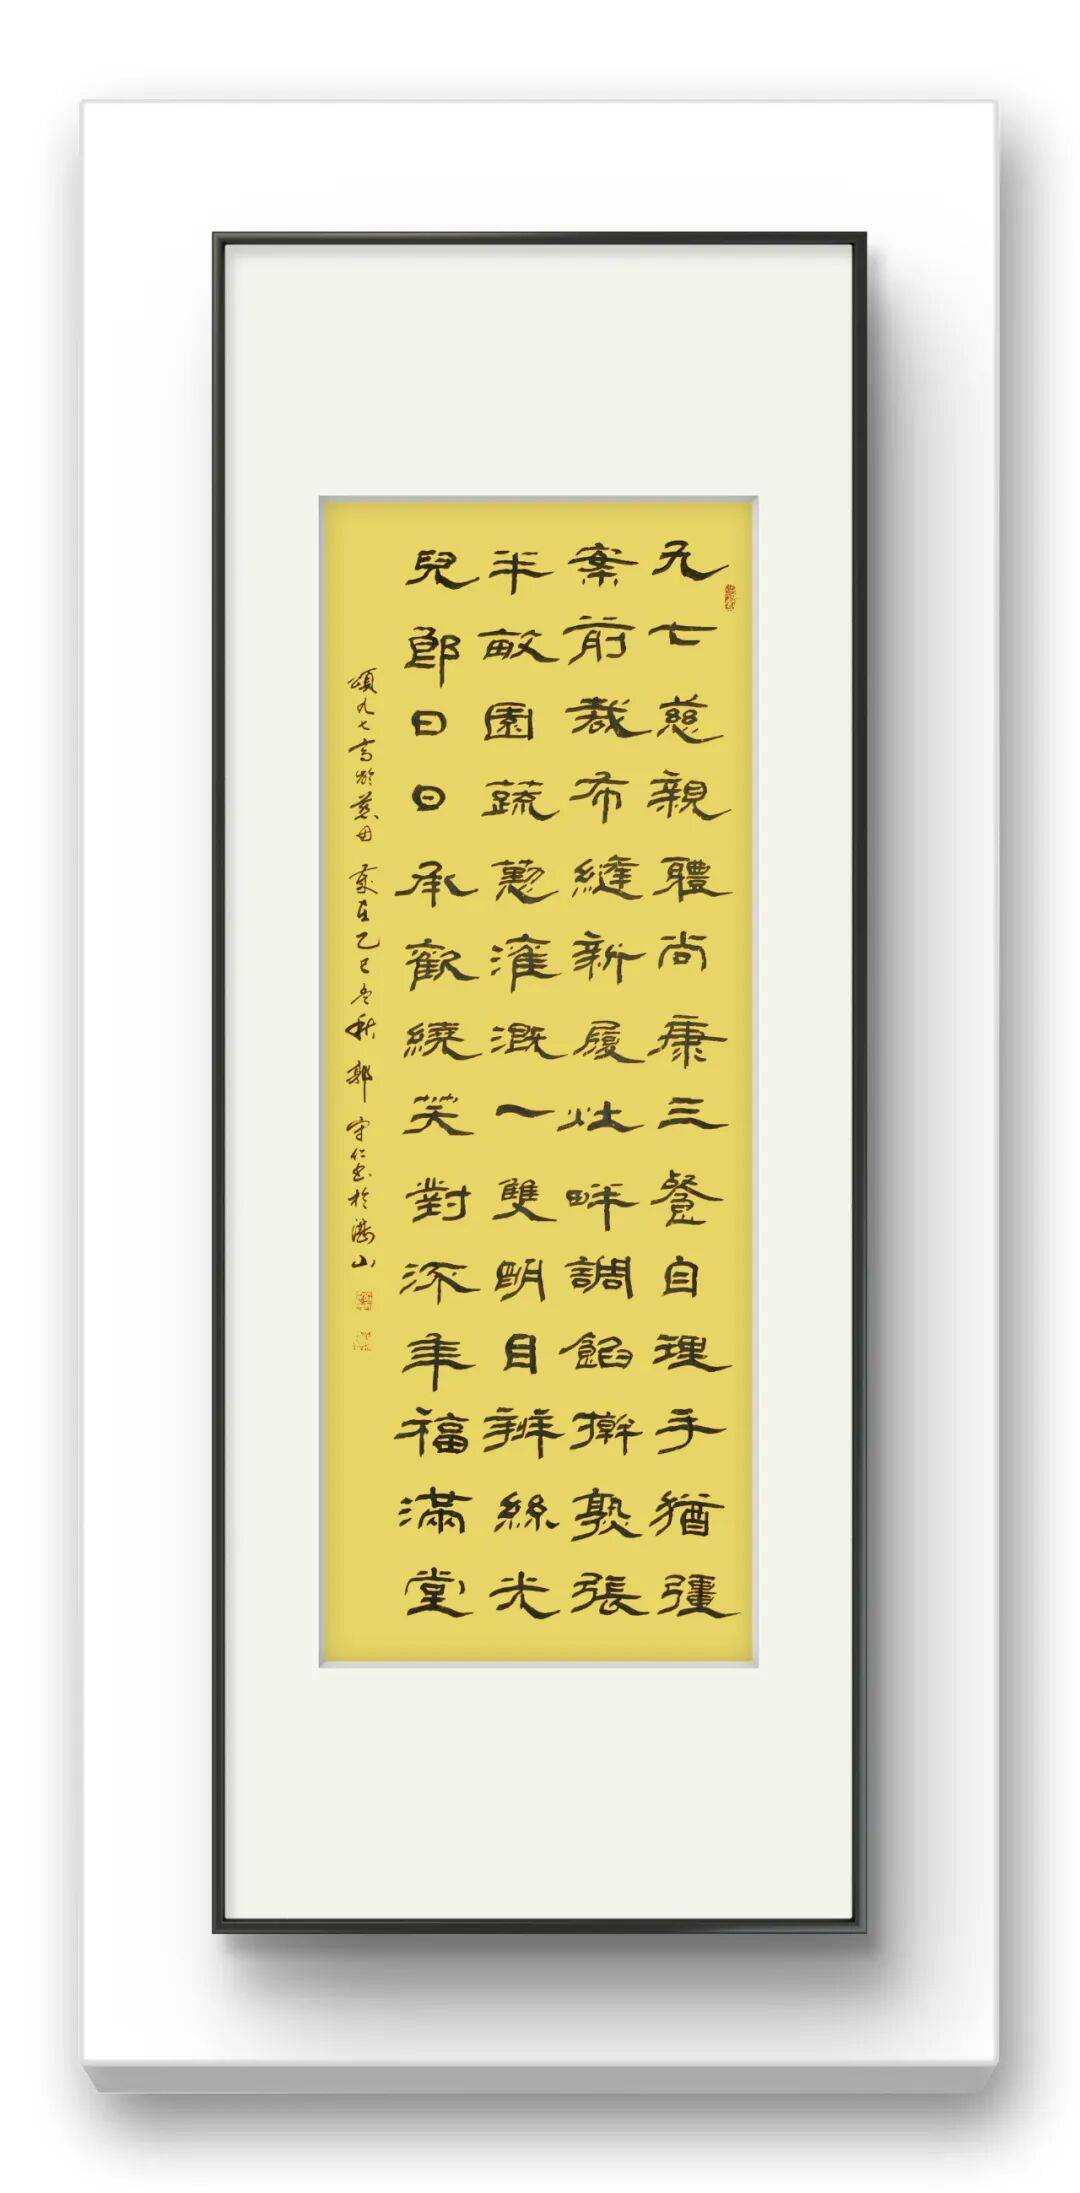 九七慈親體尚康三餐自理手猶強
案前裁布縫新履灶畔調餡擀熟張
半畝園蔬懃灌溉一雙明目辨絲光
兒郎日日承歡繞笑對流年福滿堂
頌九七高齡慈母 歲在乙巳 秋 郭守仁書於 山